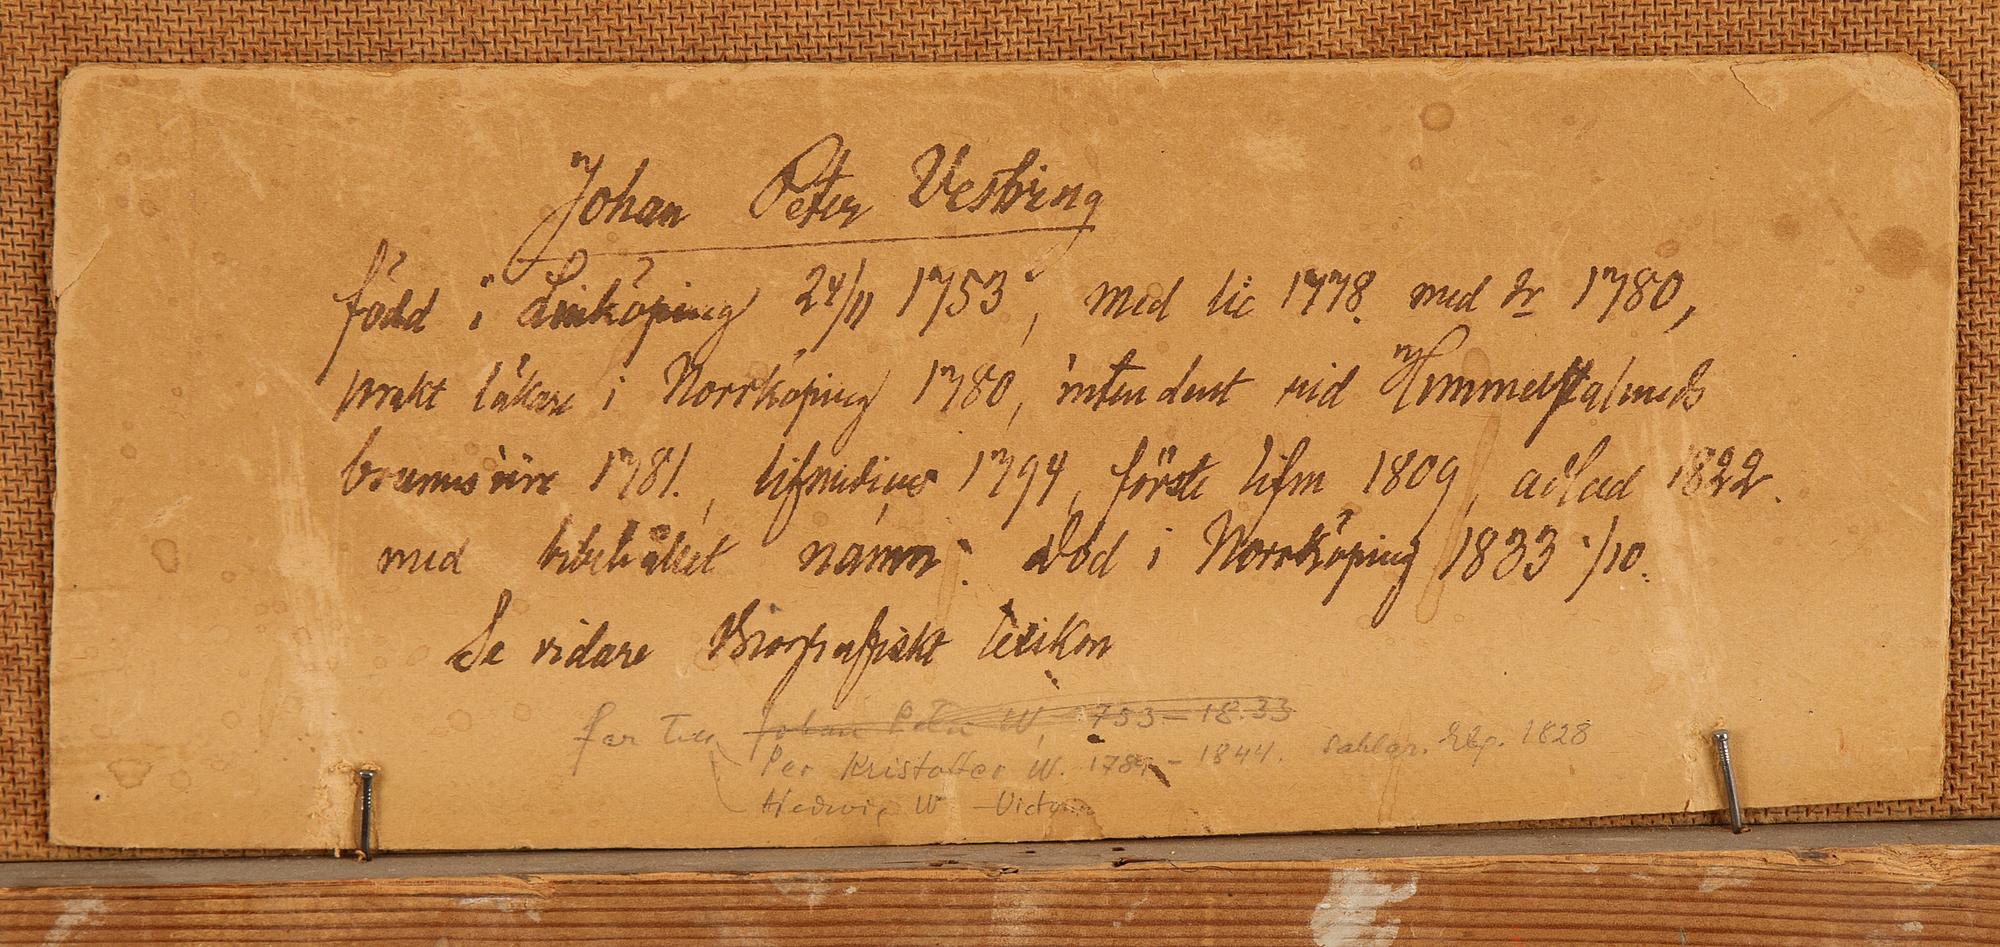 Johan Peter Vestring
född i Linköping 24/11 1753, med lic 1778. med dr 1780,
prakt läkare i Norrköping 1780, intendent vid Himmelstalunds
brunnsinr 1781., lifmedicus 1794, förste lifm 1809, adlad 1822.
med bibehållet namn. Död i Norrköping 1833 1/10.
Se vidare Biografiskt lexikon
far till Johan Peter W, 1753-18.33
Per Kristoffer W. 1784 - 1844. 1828
Hedwig W